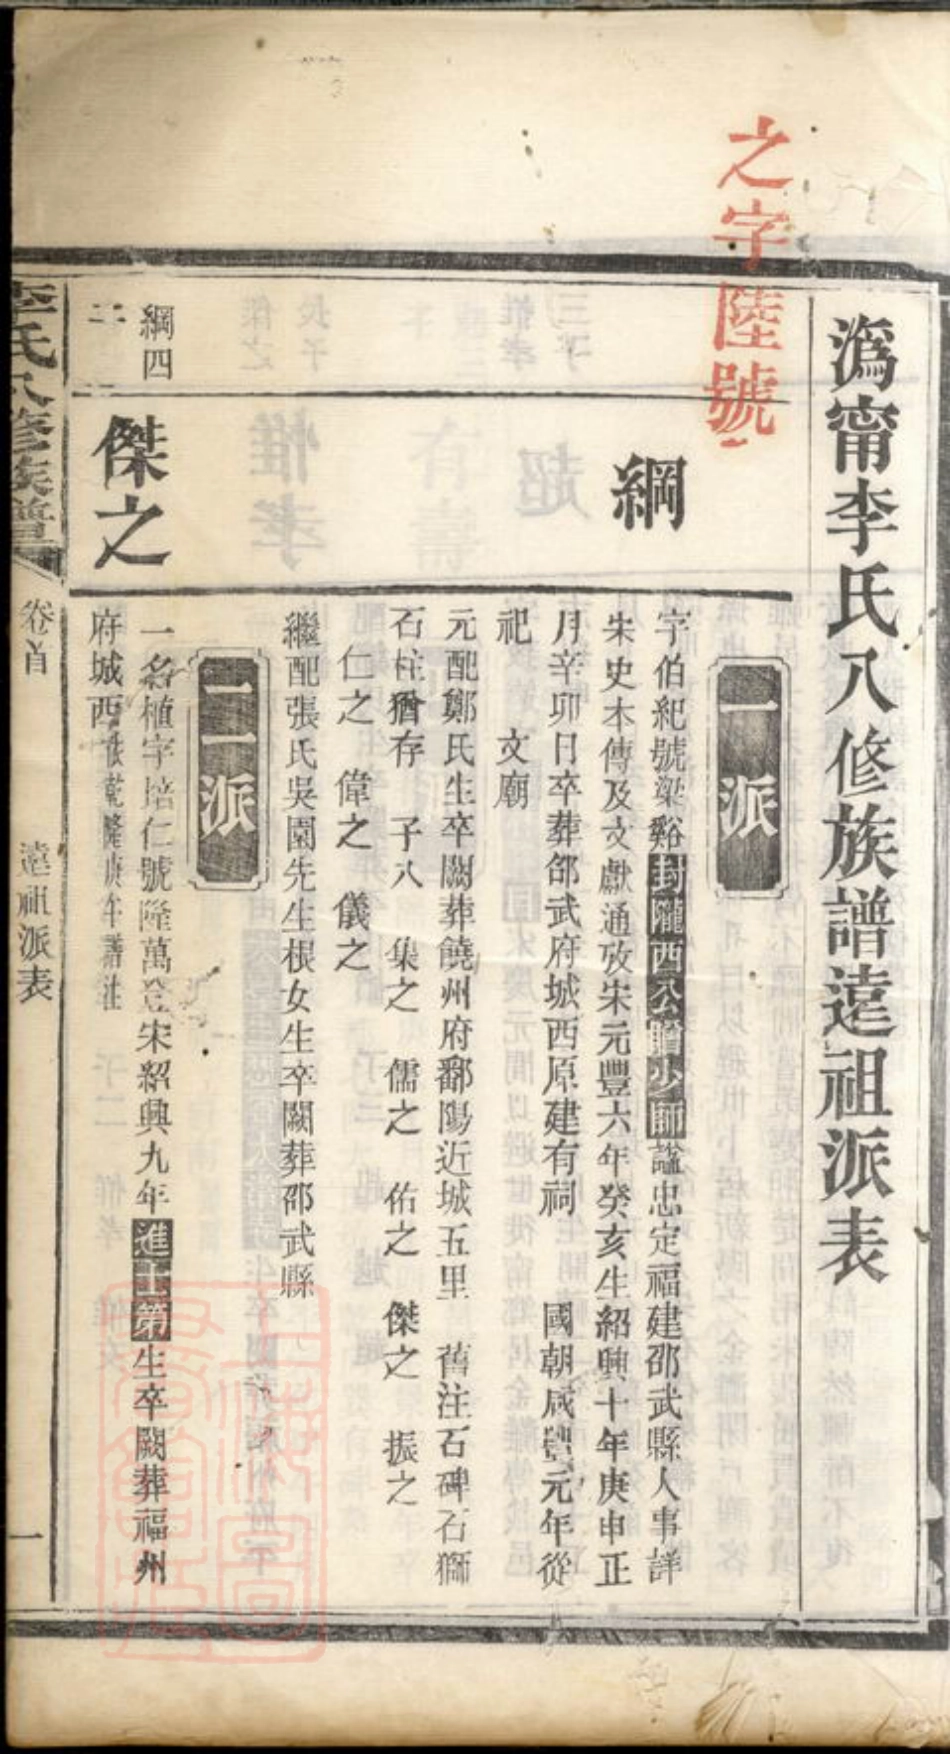 之字陸號
溈甯李氏八修族譜遠祖派表
綱
一派
字伯紀號梁谿封隴西公贈少師諡忠定福建邵武縣人事詳
宋史本傳及文獻通攷宋元豐六年癸亥生紹興十年庚申正
月辛卯日卒葬邵武府城西原建有祠 國朝咸豐元年從
祀 文廟
元配鄭氏生卒闕葬饒州府鄱陽近城五里 舊注石碑石獅
石柱猶存 子八 集之 儒之 佑之 傑之 振之
仁之 偉之 儀之
繼配張氏吳園先生根女生卒闕葬邵武縣
二派
綱四
子
傑之
一名植字培仁號隆萬登宋紹興九年進士第生卒闕葬福州
府城西 乾隆庚午譜注 子二 惟孝
李氏八修族譜
卷首
遠祖派表
一